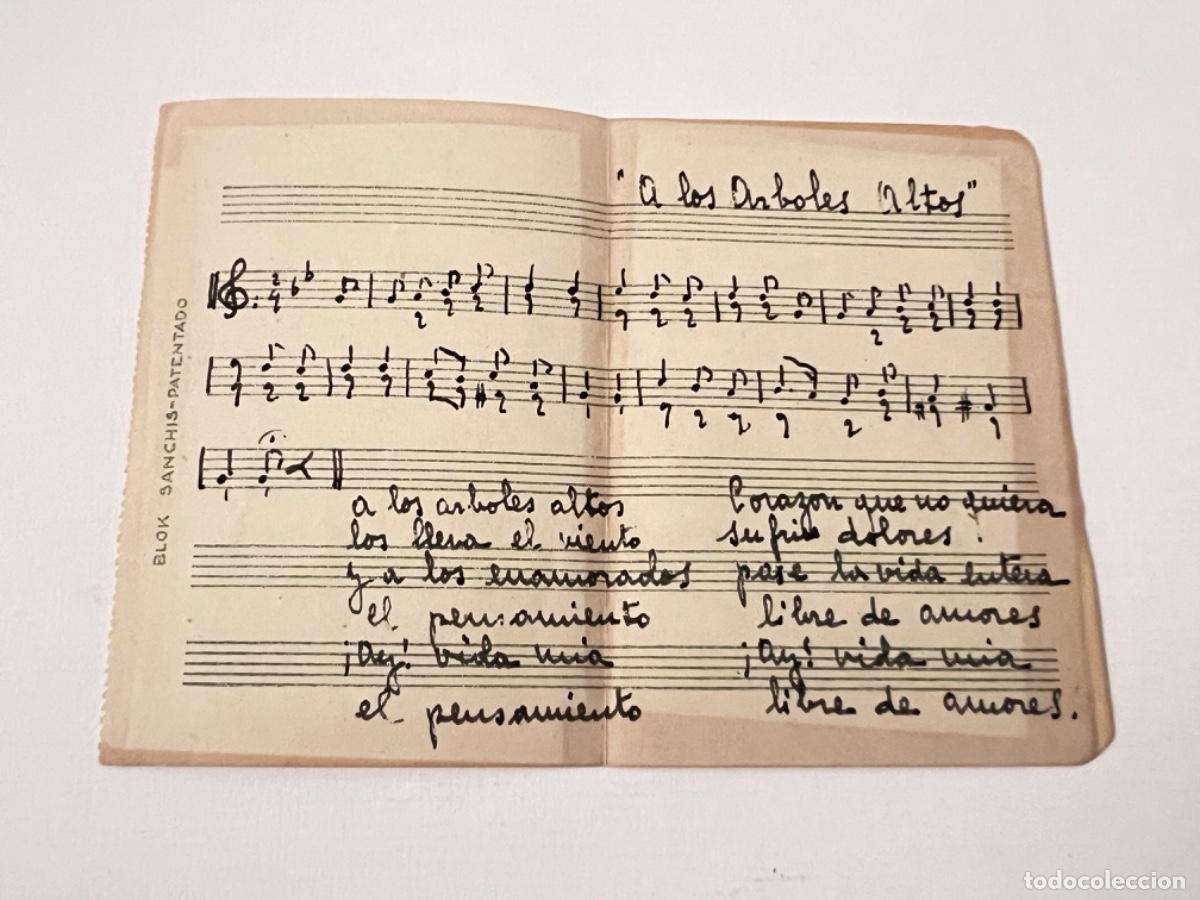 "A los Arboles Altos"
2
4
BLOK SANCHIS-PATENTADO
a los arboles altos
los lleva el viento
y a los enamorados
el pensamiento
¡Ay! vida mia
el pensamiento
Corazon que no quiera
sufrir dolores.
pase la vida entera
libre de amores
¡Ay! vida mia
libre de amores.
todocoleccion